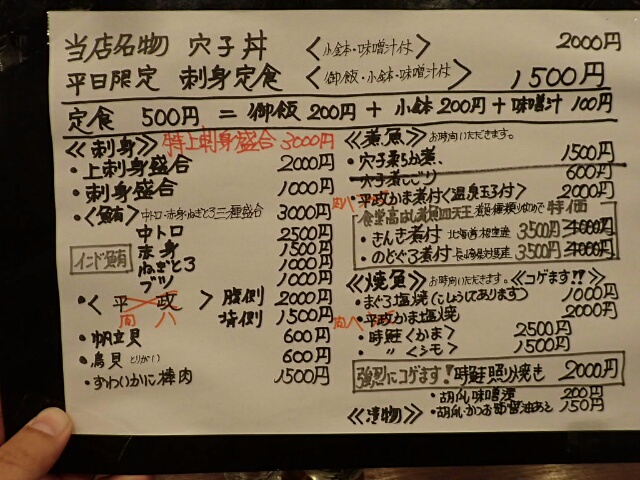 当店名物 穴子丼 〈小鉢・味噌汁付〉 2000円
平日限定 刺身定食 〈御飯・小鉢・味噌汁付〉 1500円
定食 500円 = 御飯 200円 + 小鉢 200円 + 味噌汁 100円
≪刺身≫ 特上刺身盛合 3000円
・上刺身盛合 2000円
・刺身盛合 1000円
・〈鮪〉 中トロ・赤身・ねぎとろ三種盛合 3000円
インド鮪
中トロ 2500円
赤身 1500円
ねぎとろ 1000円
ブツ 1000円
・〈平政〉 腹側 2000円
向八 背側 1500円
・帆立貝 600円
・鳥貝 とりがい 600円
・ずわいかに棒肉 1500円
≪煮魚≫ お時間いただきます。
・穴子柔らか煮、 1500円
穴子煮こごり 600円
向八
・平政かま煮付〈温泉玉子付〉 2000円
食堂高はし煮魚四天王 特価
・きんき煮付 北海道 3500円 4000円
・のどぐろ煮付 長崎県対馬産 3500円 4000円
≪焼魚≫ お時間いただきます。 ≪コゲます!!≫
・まぐろ塩焼(こしょうしてあります) 1000円
向八
・平政かま塩焼 2000円
・時鮭〈かま〉 2500円
・〃〈シモ〉 1500円
強烈にコゲます! 時鮭照り焼き 2000円
≪漬物≫
・胡瓜味噌漬 200円
・胡瓜かつお節醤油あえ 150円